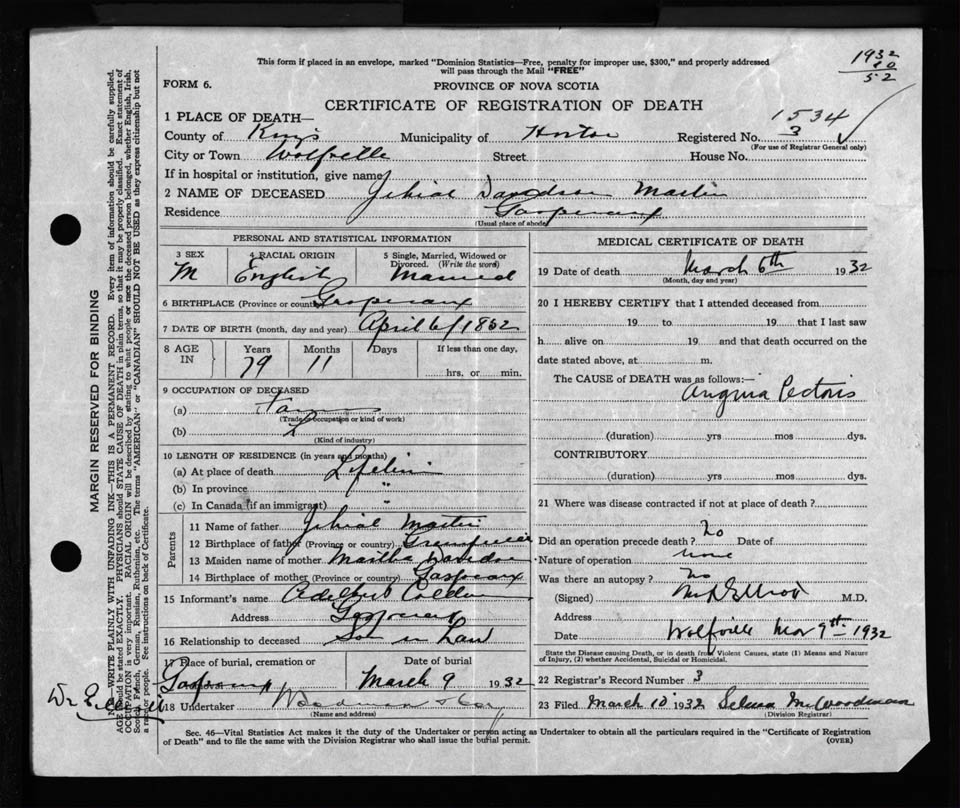 1932
80
52
This form if placed in an envelope, marked "Dominion Statistics—Free, penalty for improper use, $300," and properly addressed
will pass through the Mail "FREE"
FORM 6.
PROVINCE OF NOVA SCOTIA
CERTIFICATE OF REGISTRATION OF DEATH
1534
1 PLACE OF DEATH—
County of Kings Municipality of Horton Registered No. 3
(For use of Registrar General only)
City or Town Wolfville Street House No.
If in hospital or institution, give name
2 NAME OF DECEASED Jehial Davidson Martin
Residence Gaspereaux
(Usual place of abode)
PERSONAL AND STATISTICAL INFORMATION
3 SEX 4 RACIAL ORIGIN 5 Single, Married, Widowed or
Divorced. (Write the word)
M English Married
6 BIRTHPLACE (Province or country) Gaspereaux
7 DATE OF BIRTH (month, day and year) April 6/1852
8 AGE IN Years Months Days If less than one day,
79 11 hrs. or min.
9 OCCUPATION OF DECEASED
(a)
(Trade, occupation or kind of work)
(b)
(Kind of industry)
10 LENGTH OF RESIDENCE (in years and months)
(a) At place of death Lifetime
(b) In province "
(c) In Canada (if an immigrant) "
Parents
11 Name of father Jehial Martin
12 Birthplace of father (Province or country) Greenfield
13 Maiden name of mother Martha Davidson
14 Birthplace of mother (Province or country) Gaspereaux
15 Informant's name
Address Gaspereaux
16 Relationship to deceased Son in Law
17 Place of burial, cremation or Date of burial
March 9 1932
18 Undertaker Woodman
(Name and address)
MEDICAL CERTIFICATE OF DEATH
19 Date of death March 6th 1932
(Month, day and year)
20 I HEREBY CERTIFY that I attended deceased from
19 to 19 that I last saw
h alive on 19 and that death occurred on the
date stated above, at m.
The CAUSE OF DEATH was as follows:—
Angina Pectoris
(duration) yrs mos dys.
CONTRIBUTORY
(duration) yrs mos dys.
21 Where was disease contracted if not at place of death?
Did an operation precede death? No Date of
Nature of operation none
Was there an autopsy? no
(Signed) M.D.
Address
Date Wolfville Mar 9th 1932
State the Disease causing Death, or in death from Violent Causes, state (1) Means and Nature
of Injury, (2) whether Accidental, Suicidal or Homicidal.
22 Registrar's Record Number 3
23 Filed March 10 1932 Selena M. Woodman
(Division Registrar)
Sec. 46—Vital Statistics Act makes it the duty of the Undertaker or person acting as Undertaker to obtain all the particulars required in the "Certificate of Registration
of Death" and to file the same with the Division Registrar who shall issue the burial permit.
(OVER)
MARGIN RESERVED FOR BINDING
WRITE PLAINLY WITH UNFADING INK—THIS IS A PERMANENT RECORD. Every item of information should be carefully supplied.
AGE should be stated EXACTLY. PHYSICIANS should STATE CAUSE OF DEATH in plain terms, so that it may be properly classified. Exact statement of
OCCUPATION is very important. RACIAL ORIGIN will be described by stating to what people or race the deceased person belonged, whether English, Irish,
Scotch, French, German, Russian, Ruthenian, etc. The terms "AMERICAN" or "CANADIAN" SHOULD NOT BE USED as they express citizenship but not
a race or people. See instructions on back of Certificate.